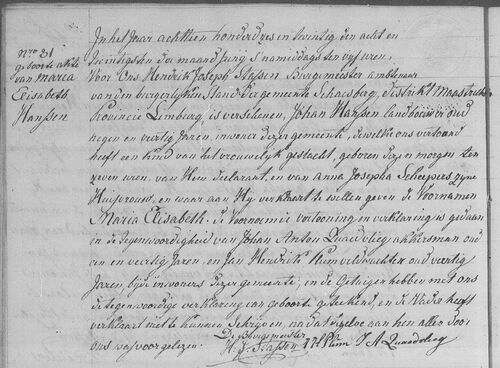 Nro 31
geboorte akte
van Maria
Elisabeth
Hanssen
In het Jaar achttien honderd zes en twintig den acht en
twintigsten der maand Junij s'namiddags ten vijf uren,
Voor Ons Hendrick Joseph Stassen Burgemeister ambtenaar
van den burgerlijken Stand der gemeente Schaesberg, distrikt Maastricht
Provincie Limburg, is verschenen, Johan Hanssen landbouwer oud
negen en veertig Jaren, inwoner dezer gemeente, dewelke ons vertoond
heeft een kind van het vrouwelijk geslacht, geboren dezen morgen ten
zeven uren, van Hem declarant, en van Anna Josepha Scheepers zyne
Huisvrouw, en waar aan Hy verklaart te willen geven de Voornamen
Maria Elisabeth. de Voornoemde vertooning en verklaring is gedaan
in de tegenwoordigheid van Johan Anton Quaedvlieg akkersman oud
een en veertig Jaren, en Jan Hendrik veldwachter oud veertig
Jaren, byde inwoners dezer gemeente, en de Getuigen hebben met ons
de tegenwoordige verklaring van geboorte geteekend, en de Vader heeft
verklaart niet te kunnen Schrijven, na dat dezelve aan hen allen door
ons was voorgelezen.
De Burgemeister
H. J. Stassen J A Quaedvlieg